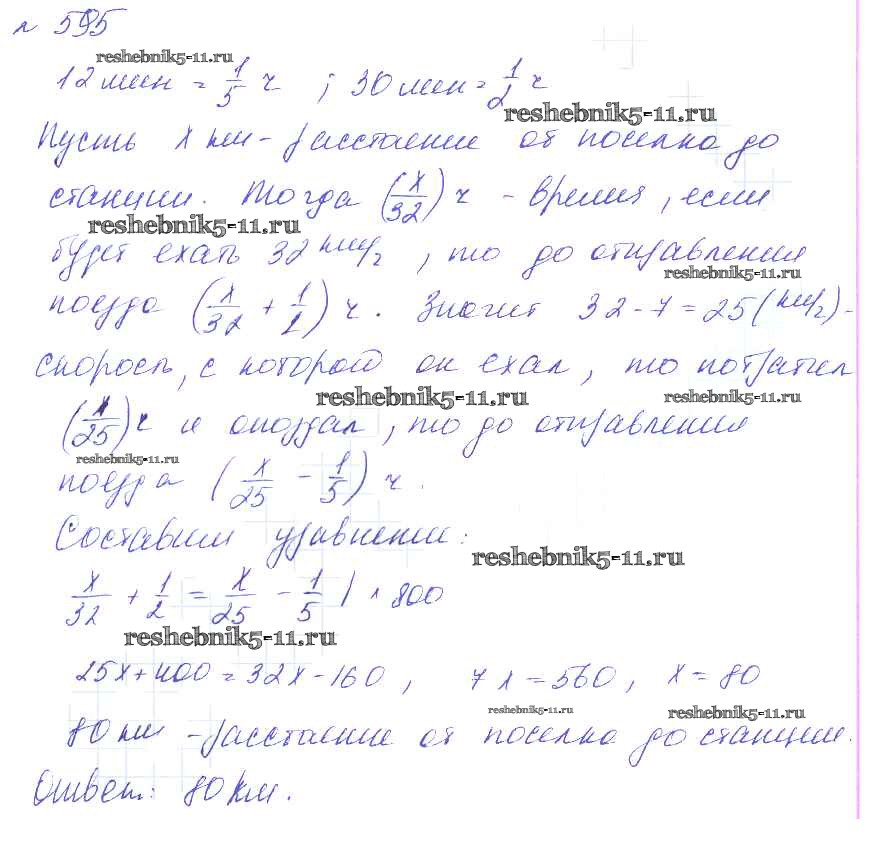 № 595
reshebnik5-11.ru
12 мин = 1/5 ч ; 30 мин = 1/2 ч
reshebnik5-11.ru
Пусть x км - расстояние от поселка до
станции. Тогда (x/32) ч - время, если
reshebnik5-11.ru
будет ехать 32 км/ч, то до отправления
reshebnik5-11.ru
поезда (x/32 + 1/2) ч. Значит 32 - 7 = 25 (км/ч) -
скорость, с которой он ехал, то потратил
reshebnik5-11.ru reshebnik5-11.ru
(x/25) ч и опоздал, то до отправления
reshebnik5-11.ru
поезда (x/25 - 1/5) ч.
Составим уравнение:
reshebnik5-11.ru
x/32 + 1/2 = x/25 - 1/5 | · 800
reshebnik5-11.ru
25x + 400 = 32x - 160, 7x = 560, x = 80
reshebnik5-11.ru reshebnik5-11.ru
80 км - расстояние от поселка до станции.
Ответ: 80 км.